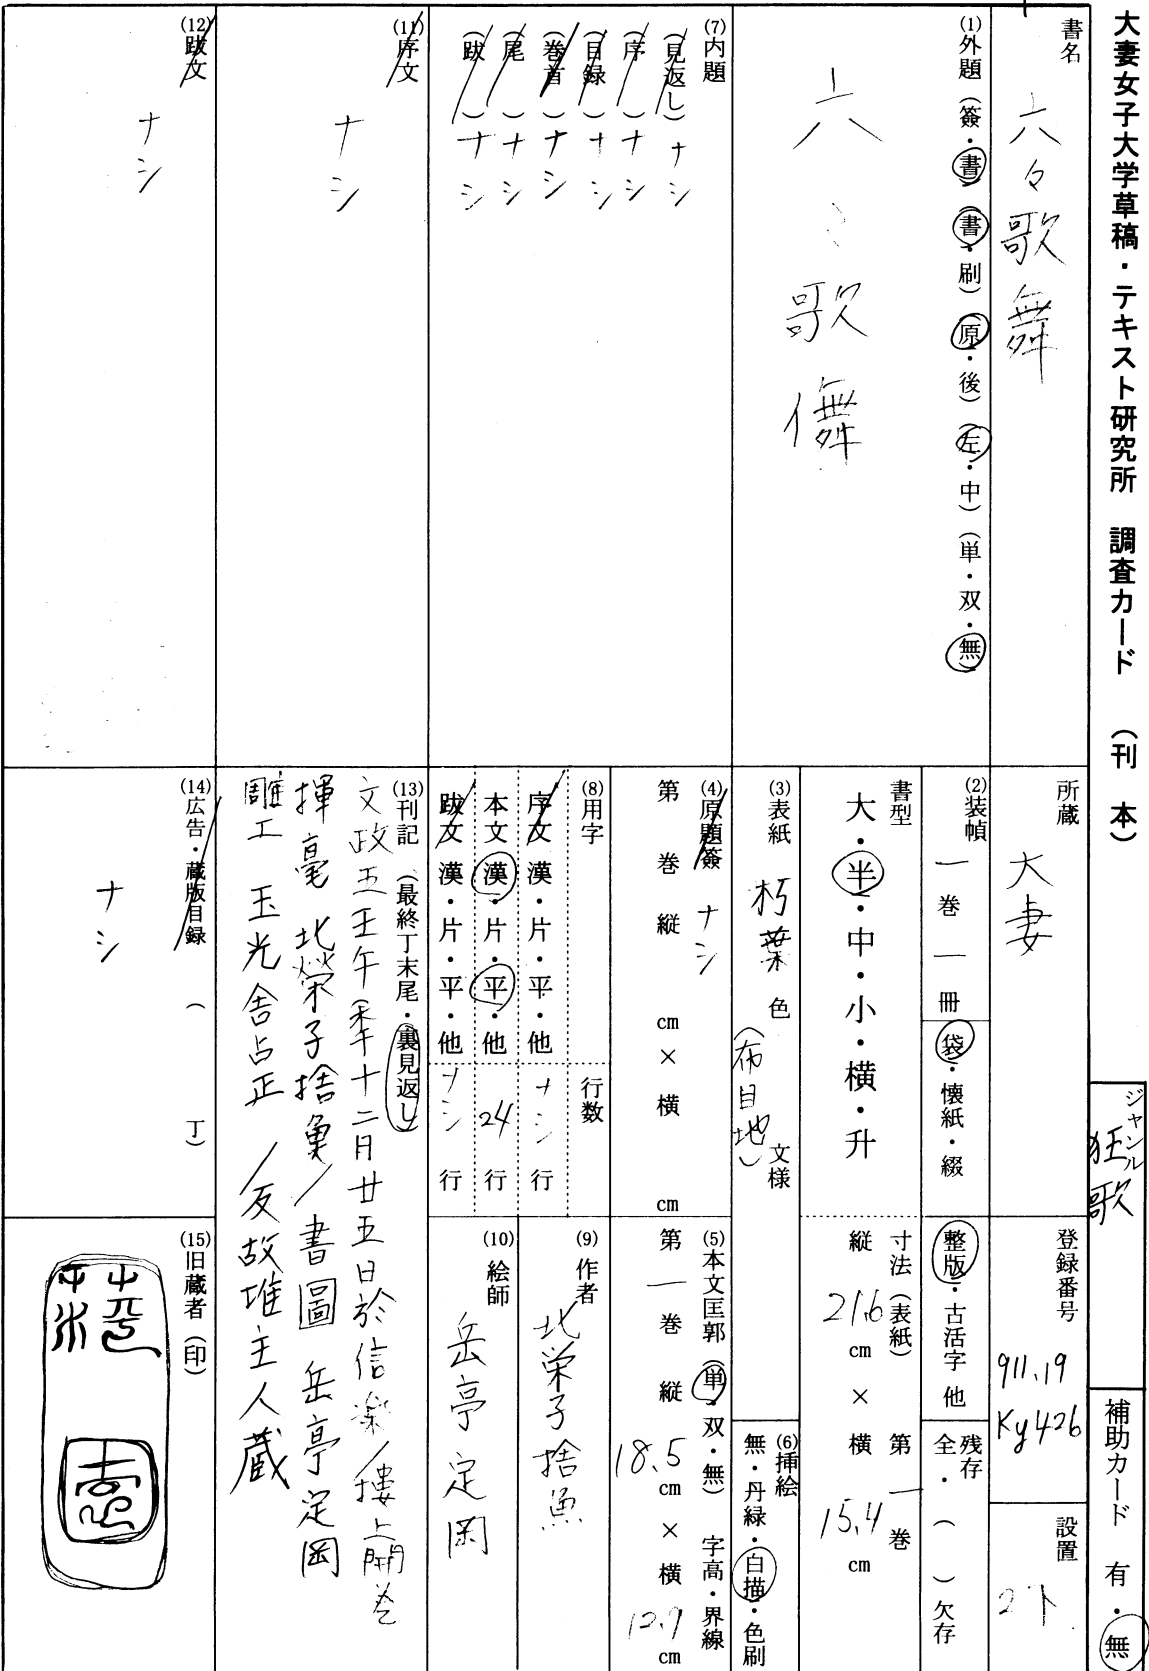 大妻女子大学草稿・テキスト研究所 調査カード (刊 本)
ジャンル
狂歌
補助カード 有・無
書名
六々歌舞
所蔵
大妻
登録番号
911.19
Ky426
設置
2下
(1)外題 (簽・書) (書・刷) (原・後) (左・中) (単・双・無)
六々歌儛
(2)装幀
一巻一冊
袋・懐紙・綴
整版・古活字 他
残存
全・( )欠存
書型
大・半・中・小・横・升
寸法(表紙) 第一巻
縦 21.6 cm × 横 15.4 cm
(3)表紙
朽葉 色
(布目地) 文様
(4)原題簽 ナシ
第 巻 縦 cm × 横 cm
(5)本文匡郭 (単・双・無) 字高・界線
第一巻 縦 18.5 cm × 横 12.7 cm
(6)挿絵
無・丹緑・白描・色刷
(7)内題
(見返し) ナシ
(序) ナシ
(目録) ナシ
(巻首) ナシ
(尾) ナシ
(跋) ナシ
(8)用字 行数
序文 漢・片・平・他 ナシ 行
本文 漢・片・平・他 24 行
跋文 漢・片・平・他 ナシ 行
(9)作者
北栄子捨魚
(10)絵師
岳亭定岡
(11)序文
ナシ
(12)跋文
ナシ
(13)刊記 (最終丁末尾・裏見返し)
文政五壬午季十二月廿五日於信楽/楼上開巻
揮毫 北榮子捨魚/書圖 岳亭定岡
雕工 玉光舎占正/反故堆主人蔵
(14)広告・蔵版目録 ( 丁)
ナシ
(15)旧蔵者(印)